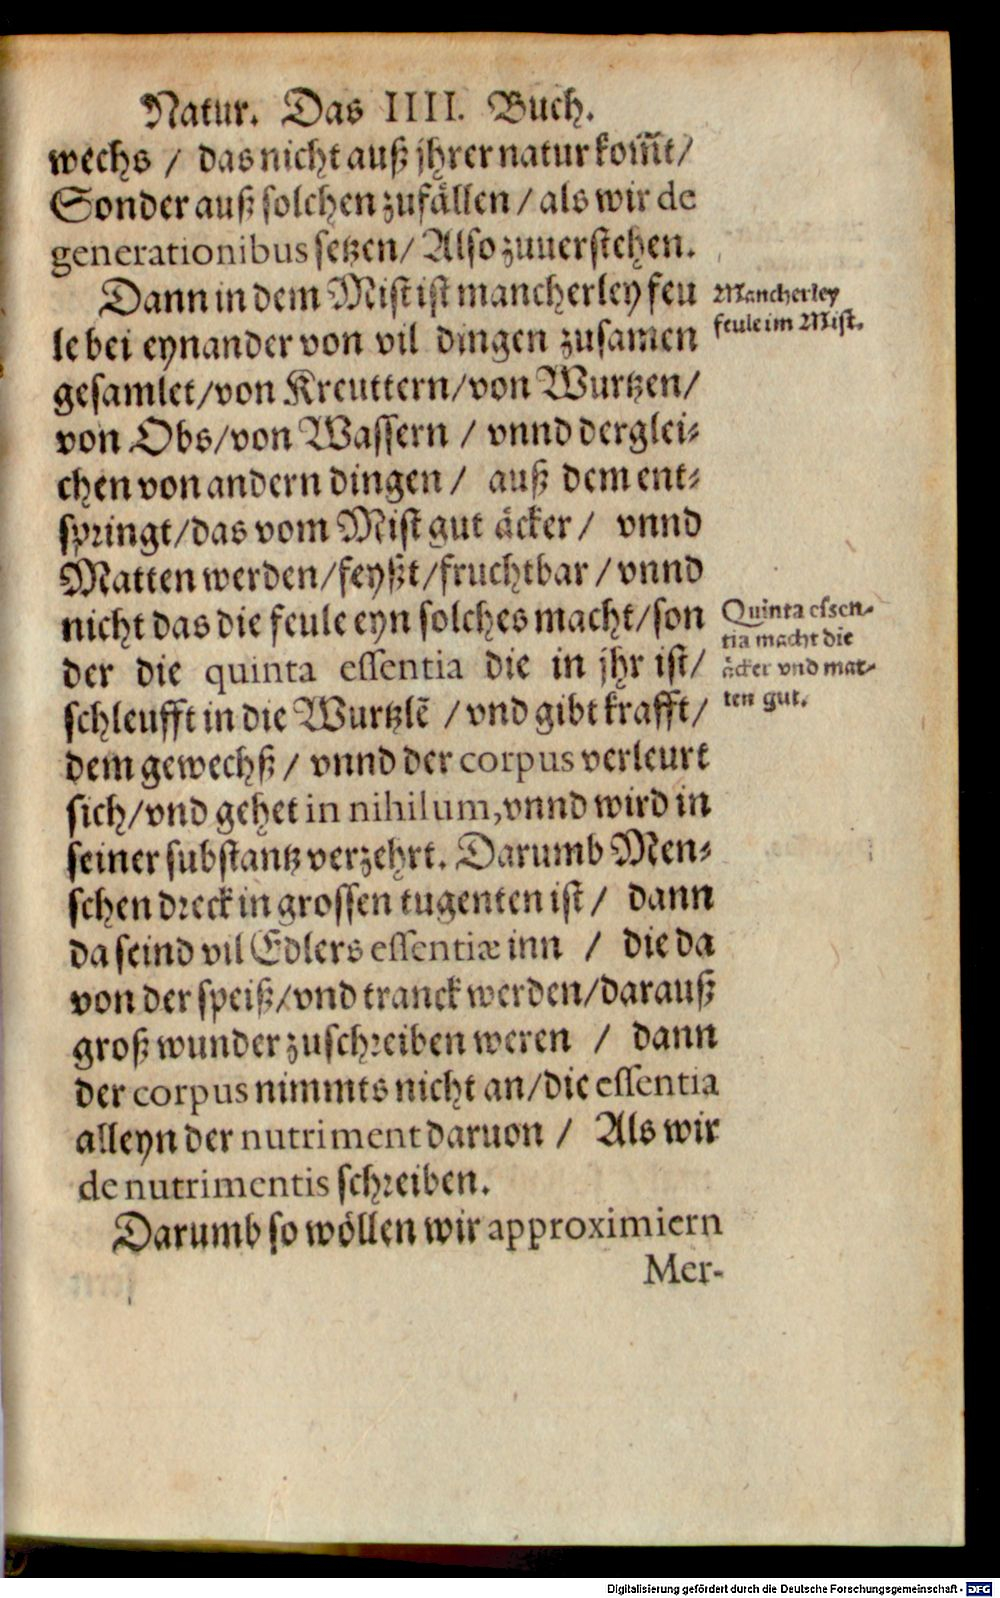 Natur. Das IIII. Buch.
wechs / das nicht auß jhrer natur kom̃t/
Sonder auß solchen zufällen / als wir de
generationibus setzen/ Also zuuerstehen.
Dann in dem Mist ist mancherley feu
le bei eynander von vil dingen zusamen
gesamlet/von Kreuttern/von Wurtzen/
von Obs/von Wassern / vnnd derglei⸗
chen von andern dingen / auß dem ent⸗
springt/das vom Mist gut äcker / vnnd
Matten werden/feyßt/fruchtbar / vnnd
nicht das die feule eyn solches macht/son
der die quinta essentia die in jhr ist/
schleufft in die Wurtzlē / vnd gibt krafft/
dem gewechß / vnnd der corpus verleurt
sich/vnd gehet in nihilum,vnnd wird in
seiner substantz verzehrt. Darumb Men⸗
schen dreck in grossen tugenten ist / dann
da seind vil Edlers essentiæ inn / die da
von der speiß/vnd tranck werden/darauß
groß wunder zuschreiben weren / dann
der corpus nimmts nicht an/die essentia
alleyn der nutriment daruon / Als wir
de nutrimentis schreiben.
Darumb so wöllen wir approximiern
Mer-
Mancherley
feule im Mist.
Quinta essen⸗
tia macht die
äcker vnd mat⸗
ten gut.
Digitalisierung gefördert durch die Deutsche Forschungsgemeinschaft - DFG